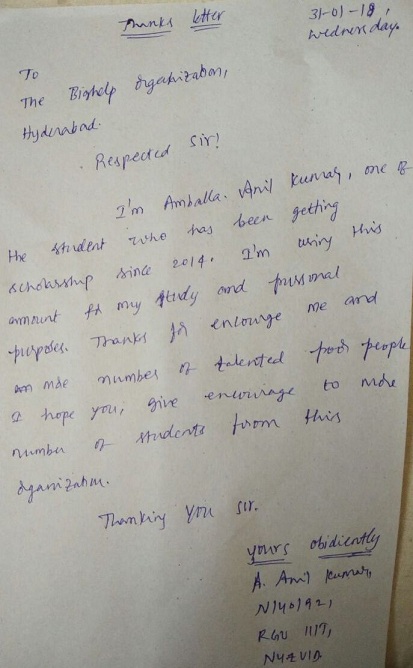 Thanks letter
31-01-18,
Wednesday.
To
The Bighelp Organization,
Hyderabad.
Respected Sir!
I'm Amballa. Anil Kumar, one of
the student who has been getting
scholarship since 2014. I'm using this
amount for my study and
purposes. Thanks for encourge me and
more number of talented poor people
I hope you, give encourage to more
number of students from this
organization.
Thanking you sir.
yours obidiently
A. Anil Kumar,
N140192,
RGU IIIT,
NUZVID